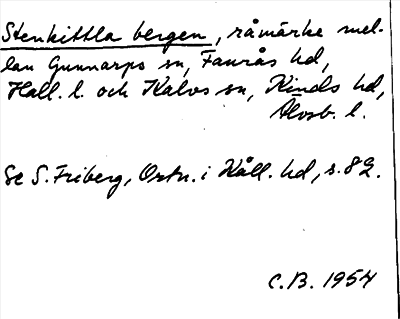 Stenkittla bergen, råmärke mel-
lan Gunnarps sn, Faurås hd,
Hall. l. och Kalvs sn, Kinds hd,
Älvsb. l.
Se S. Friberg, Ortn. i Håll. hd, s. 82.
C.B. 1954